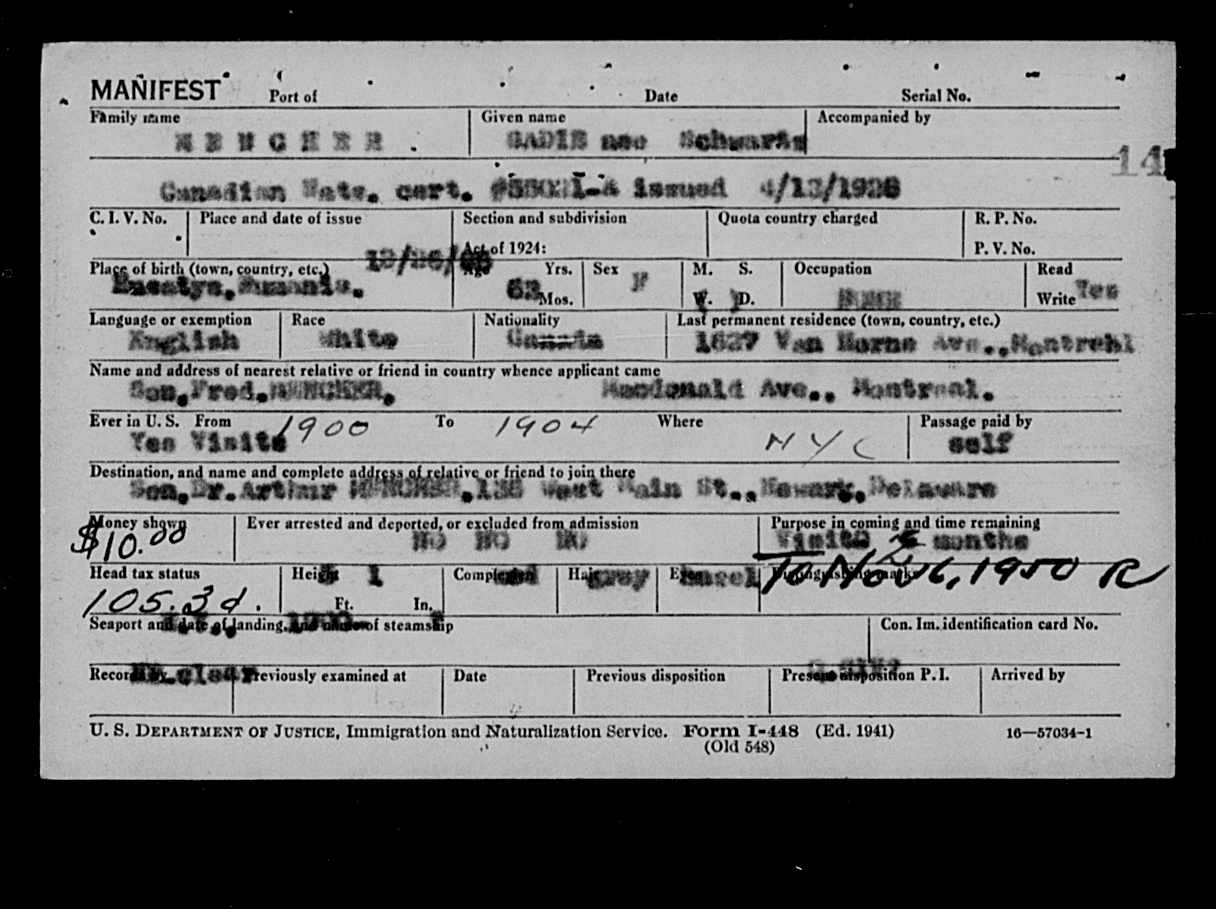 MANIFEST Port of Date Serial No.
Family name Given name Accompanied by
MENCHER. SADIE nee Schwartz
14
Canadian Natz. cert. issued 4/13/1926
C. I. V. No. Place and date of issue Section and subdivision Quota country charged R. P. No.
Act of 1924: P. V. No.
Place of birth (town, country, etc.) Age Yrs. Sex M. S. Occupation Read
Rumania. 62 Mos. F W. D. HOME Write Yes
Language or exemption Race Nationality Last permanent residence (town, country, etc.)
English White Canada 1627 Van Horne Ave., Montreal
Name and address of nearest relative or friend in country whence applicant came
Son, Fred. MENCHER, Macdonald Ave., Montreal.
Ever in U. S. From 1900 To 1904 Where NYC Passage paid by
Yes Visits self
Destination, and name and complete address of relative or friend to join there
Son, Dr. Arthur MENCHER, West Main St., Newark, Delaware
Money shown Ever arrested and deported, or excluded from admission Purpose in coming and time remaining
$10.00 NO NO NO Visit 2 months
To Nov 6, 1950 R
Head tax status Height Complexion Hair grey Eyes Hazel Distinguishing marks
105.3d. Ft. 1 In.
Seaport and date of landing, and name of steamship Con. Im. identification card No.
Record by clear Previously examined at Date Previous disposition Present disposition P. I. Arrived by
U. S. DEPARTMENT OF JUSTICE, Immigration and Naturalization Service. Form I-448 (Ed. 1941) 16—57034-1
(Old 548)